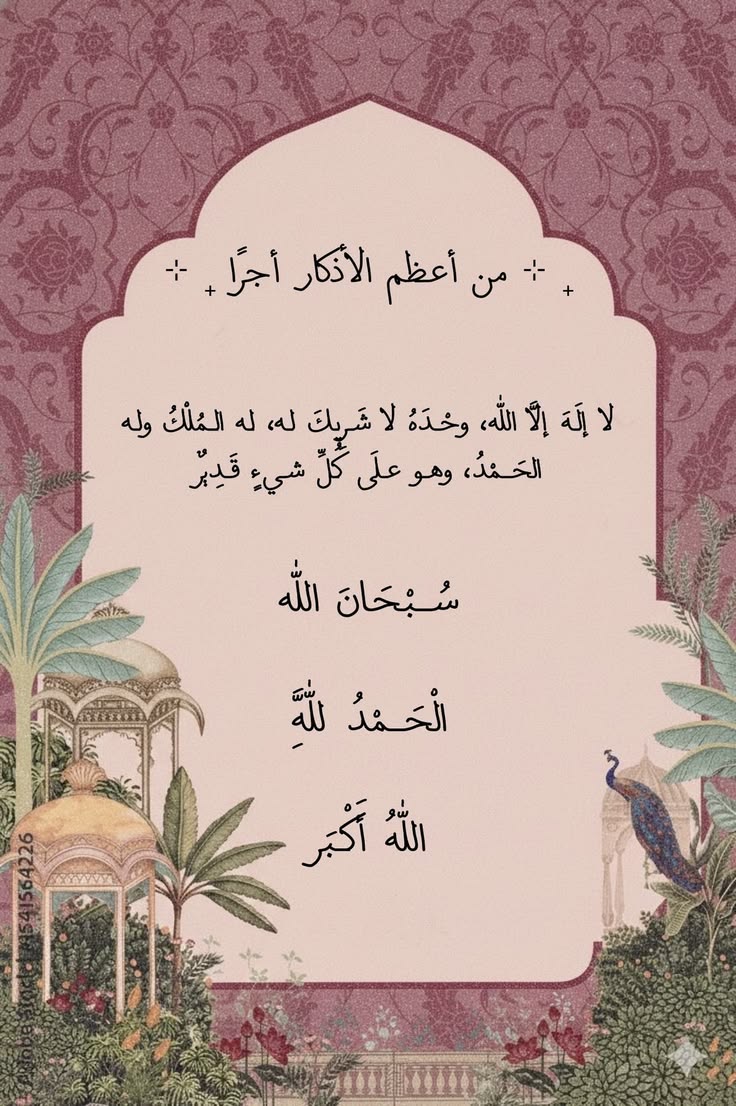 من أعظم الأذكار أجرًا
لا إلَهَ إلَّا اللَّه، وحْدَهُ لا شَرِيكَ له، له المُلْكُ وله
الحَمْدُ، وهو علَى كُلِّ شيءٍ قَدِيرٌ
سُبْحَانَ اللّٰه
الْحَمْدُ للّٰهِ
اللّٰهُ أَكْبَر
1541564226